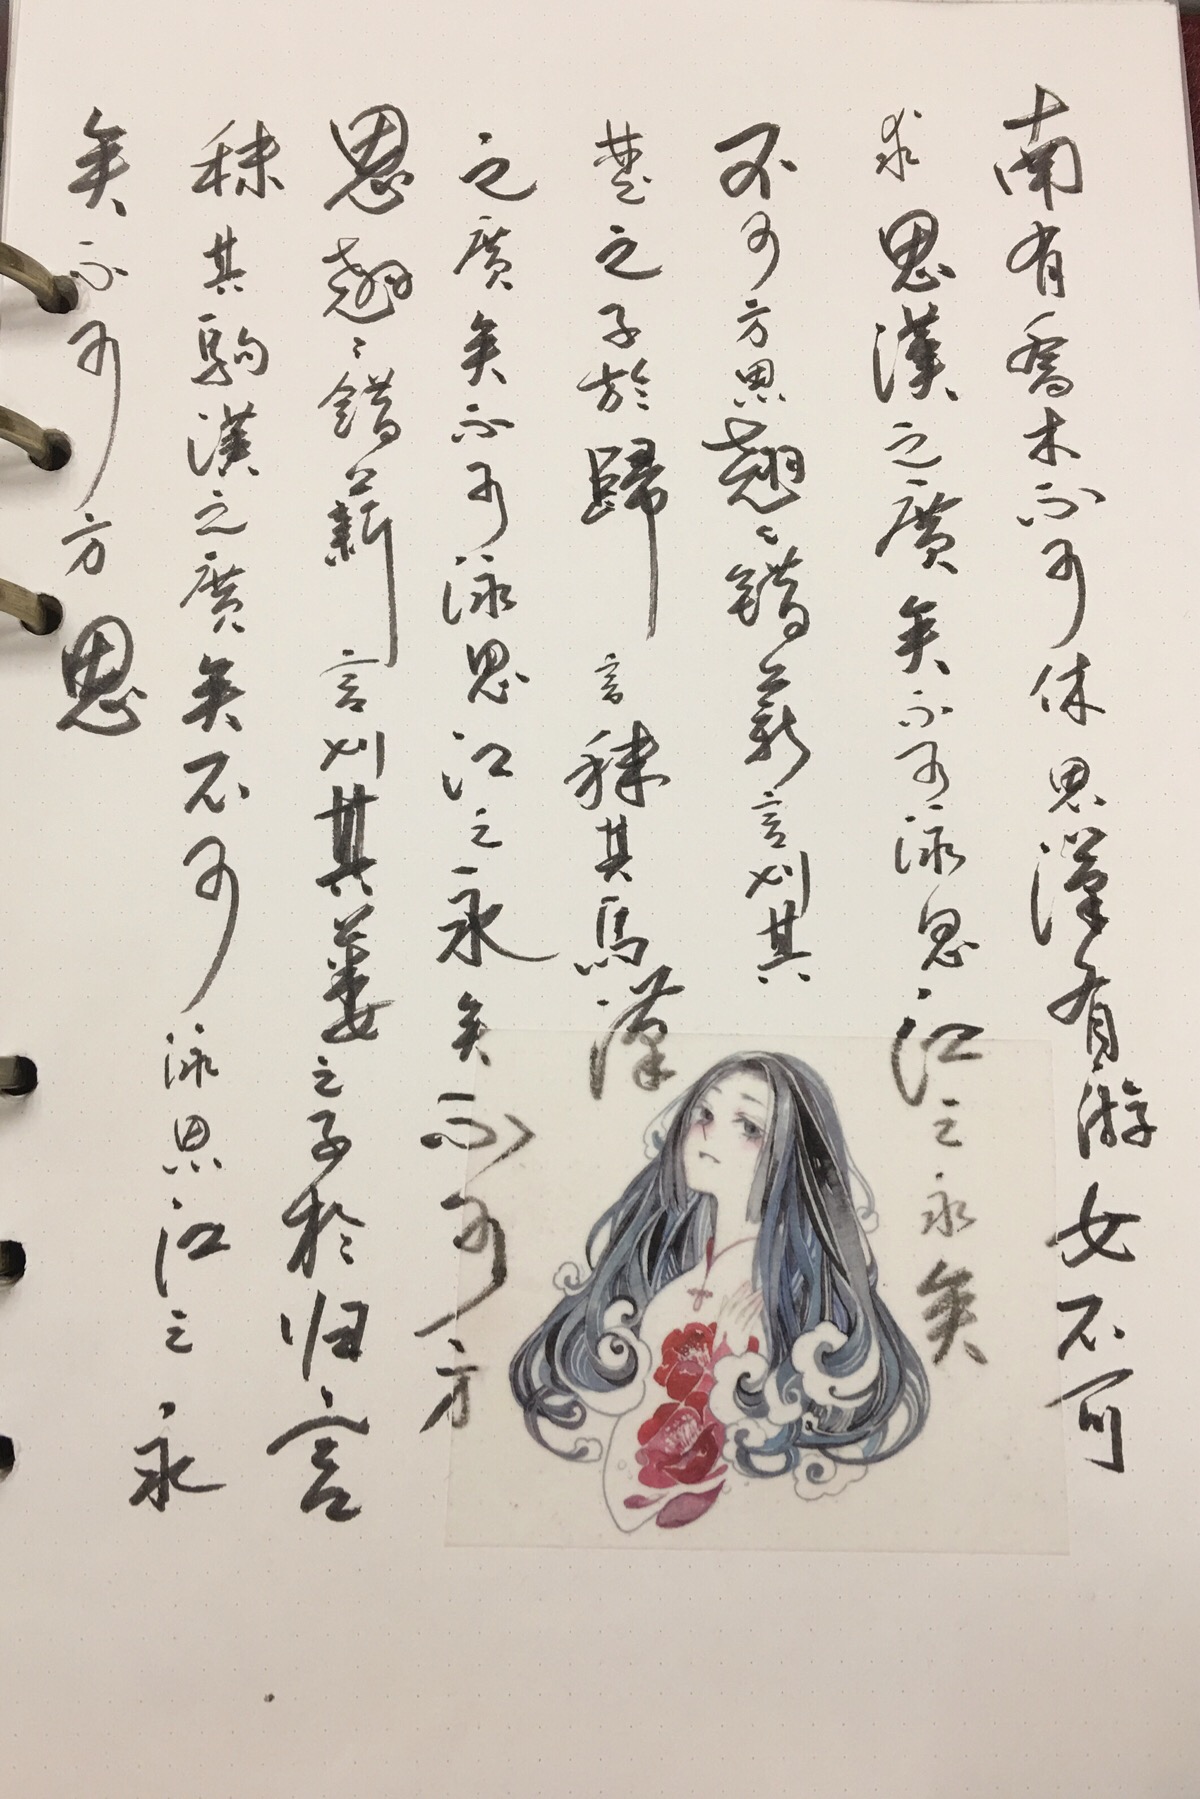 南有喬木不可休思漢有游女不可
求思漢之廣矣不可泳思江之永矣
不可方思翹〻錯薪言刈其
楚之子於歸言秣其馬漢
之廣矣不可泳思江之永矣不可方
思翹〻錯薪言刈其蔞之子於归言
秣其駒漢之廣矣不可泳思江之永
矣不可方思